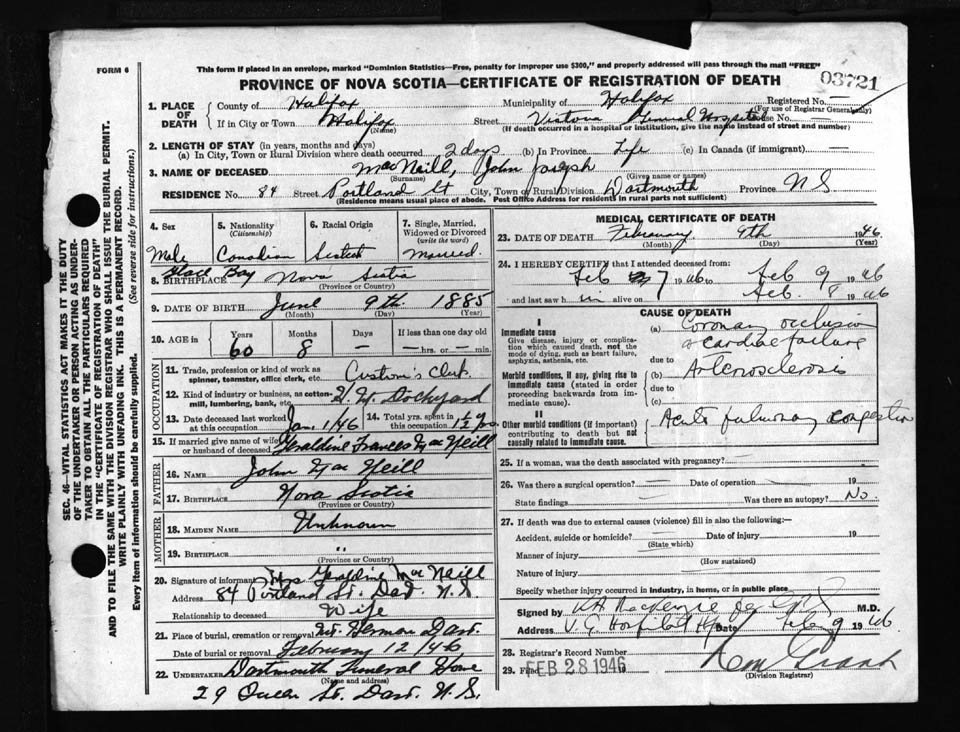 FORM 6
This form if placed in an envelope, marked "Dominion Statistics—Free, penalty for improper use $300," and properly addressed will pass through the mail "FREE"
PROVINCE OF NOVA SCOTIA—CERTIFICATE OF REGISTRATION OF DEATH
03721
1. PLACE OF DEATH
County of Halifax Municipality of Halifax Registered No. —
(For use of Registrar General only)
If in City or Town Halifax Street Victoria General Hospital House No. —
(Name) (If death occurred in a hospital or institution, give the name instead of street and number)
2. LENGTH OF STAY (in years, months and days)
(a) In City, Town or Rural Division where death occurred 2 days (b) In Province Life (c) In Canada (if immigrant) —
3. NAME OF DECEASED MacNeill, John Joseph
(Surname) (Given name or names)
RESIDENCE No. 84 Street Portland St City, Town or Rural Division Dartmouth Province N S
(Residence means usual place of abode. Post Office Address for residents in rural parts not sufficient)
4. Sex
Male
5. Nationality
(Citizenship)
Canadian
6. Racial Origin
7. Single, Married, Widowed or Divorced
(write the word)
Married
8. BIRTHPLACE Glace Bay Nova Scotia
(Province or Country)
9. DATE OF BIRTH June 9th 1885
(Month) (Day) (Year)
10. AGE in
Years
60
Months
8
Days
—
If less than one day old
— hrs. or — min.
OCCUPATION
11. Trade, profession or kind of work as
spinner, teamster, office clerk, etc. Custom's Clerk
12. Kind of industry or business, as cotton-
mill, lumbering, bank, etc. Dockyard
13. Date deceased last worked
at this occupation Jan. 1/46
14. Total yrs. spent in
this occupation 1½ yrs
15. If married give name of wife
or husband of deceased Geraldine Frances MacNeill
FATHER
16. NAME John MacNeill
17. BIRTHPLACE Nova Scotia
(Province or Country)
MOTHER
18. MAIDEN NAME Unknown
19. BIRTHPLACE "
(Province or Country)
20. Signature of informant Mrs Geraldine MacNeill
Address 84 Portland St. Dart. N.S.
Relationship to deceased Wife
21. Place of burial, cremation or removal Mt. Hermon Dart.
Date of burial or removal February 12/46
22. UNDERTAKER Dartmouth Funeral Home
(Name and address)
29 Queen St. Dart. N.S.
MEDICAL CERTIFICATE OF DEATH
23. DATE OF DEATH February 9th 1946
(Month) (Day) (Year)
24. I HEREBY CERTIFY that I attended deceased from:
Feb 7 1946 to Feb 9 1946
and last saw h im alive on Feb. 8 1946
CAUSE OF DEATH
I
Immediate cause
Give disease, injury or complication which caused death, not the mode of dying, such as heart failure, asphyxia, asthenia, etc.
(a) Coronary occlusion
& cardiac failure
due to
Morbid conditions, if any, giving rise to immediate cause (stated in order proceeding backwards from immediate cause).
(b) Arteriosclerosis
due to
(c)
II
Other morbid conditions (if important) contributing to death but not causally related to immediate cause.
Acute pulmonary congestion
25. If a woman, was the death associated with pregnancy? —
26. Was there a surgical operation? — Date of operation — 19
State findings Was there an autopsy? No
27. If death was due to external causes (violence) fill in also the following:—
Accident, suicide or homicide? Date of injury 19
(State which)
Manner of injury
(How sustained)
Nature of injury
Specify whether injury occurred in Industry, in home, or in public place
Signed by MacKenzie M.D.
Address V.G. Hospital Date Feb 9 1946
28. Registrar's Record Number
29. Filed FEB 28 1946 Grant
(Division Registrar)
SEC. 46—VITAL STATISTICS ACT MAKES IT THE DUTY
OF THE UNDERTAKER OR PERSON ACTING AS UNDER-
TAKER TO OBTAIN ALL THE PARTICULARS REQUIRED
IN THE "CERTIFICATE OF REGISTRATION OF DEATH"
AND TO FILE THE SAME WITH THE DIVISION REGISTRAR WHO SHALL ISSUE THE BURIAL PERMIT.
WRITE PLAINLY WITH UNFADING INK. THIS IS A PERMANENT RECORD.
Every item of information should be carefully supplied. (See reverse side for instructions.)